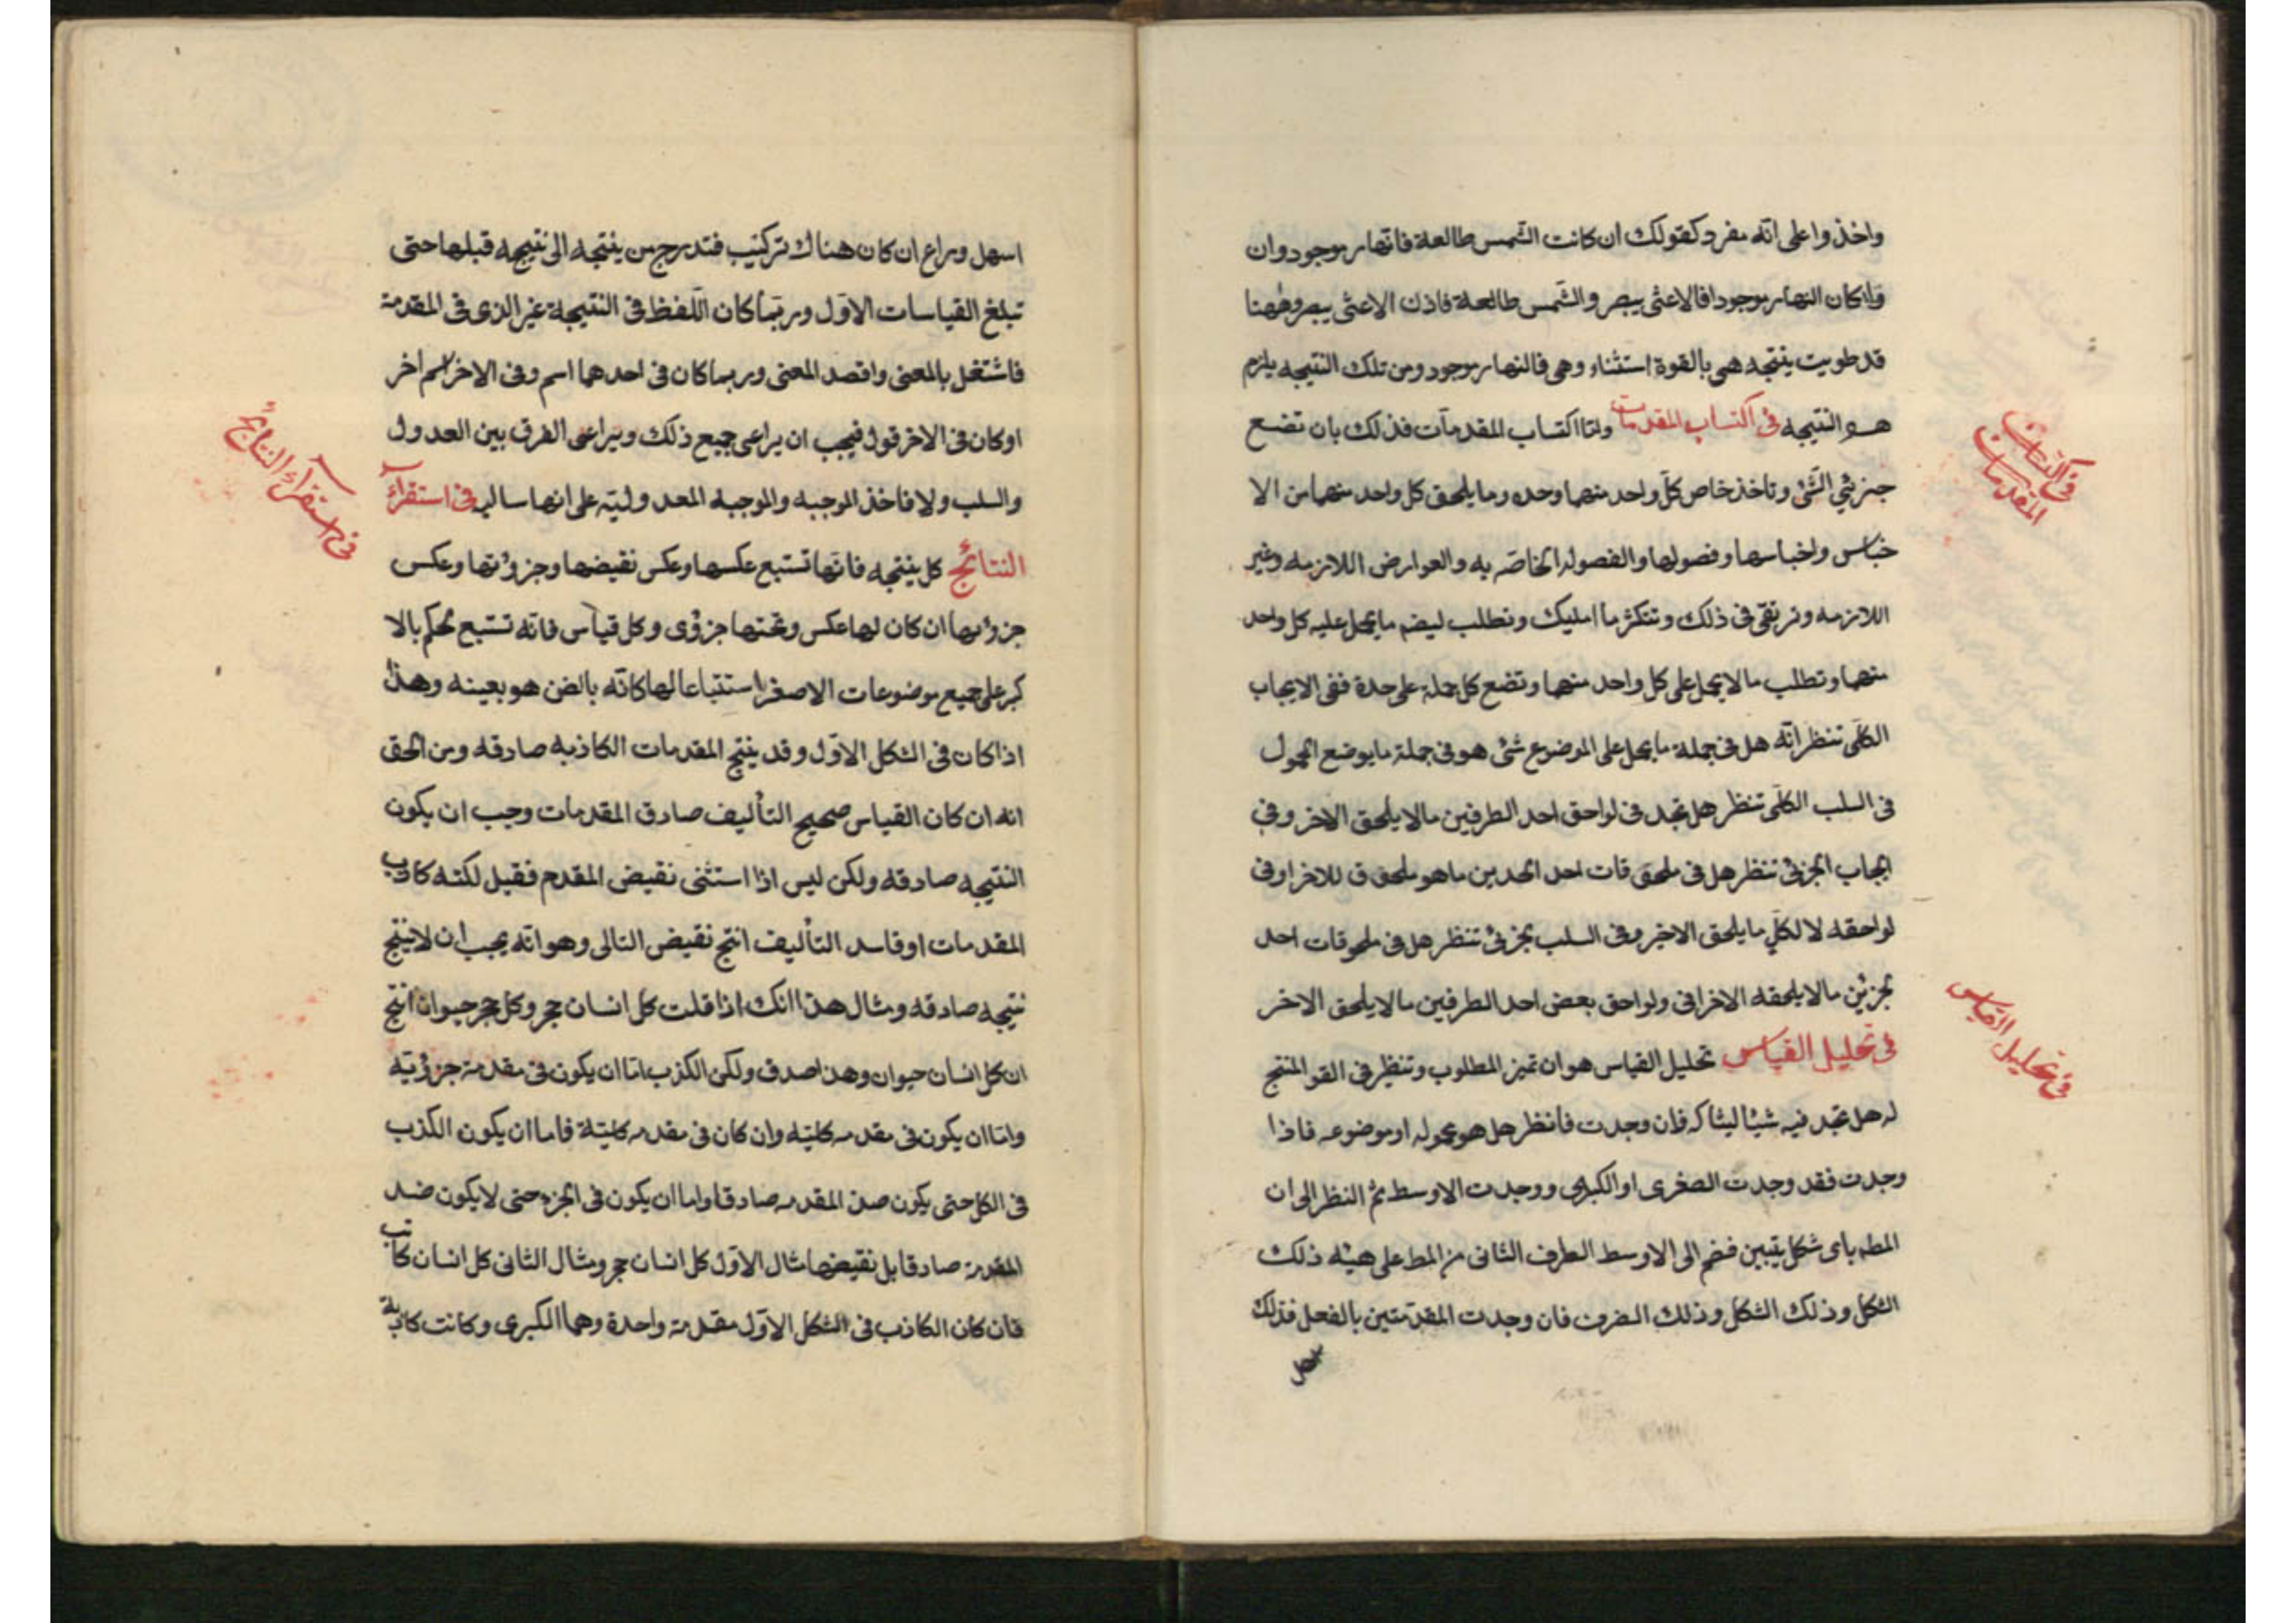 واخذوا على انه مفرد كقولك ان كانت الشمس طالعة فانهار موجود وان
وانكان النهار موجودا فالاعشى يبصر والشمس طالعة فاذن الاعشى يبصر وههنا
قد طويت ينتجه هى بالقوة استثناء وهى فالنهار موجود ومن تلك النتيجه يلزم
هو النتيجه فى اكتساب المقدمات وامّا اكتساب المقدمات فذلك بان تضع
فى اكتساب المقدمات
جزئي الشئ وتاخذ خاص كل واحد منهما وحده وما يلحق كل واحد منهما من الا
خباس واخباسها وفصولها والفصول الخاصه به والعوارض اللازمه وغير
اللازمه وترتقى فى ذلك وتتكثر ما امليك وتطلب ليضم ما يحمل عليه كل واحد
منهما وتطلب ما لا يحمل على كل واحد منهما وتضع كل جملة على حدة ففى الايجاب
الكلى تنظر انه هل فى جملة ما يحمل على الموضوع شئ هو فى جملة ما يوضع المحمول
فى السلب الكلى تنظر هل تجد فى لواحق احد الطرفين ما لا يلحق الاخر وفى
ايجاب الجزئى تنظر هل فى ملحق قات احد الحدين ما هو ملحق ق للاخر او فى
لواحقه لا لكل ما يلحق الاخير وفى السلب بجزئى تنظر هل فى ملحوقات احد
بجزئين ما لا يلحقه الاخر افى ولواحق بعض احد الطرفين ما لا يلحق الاخر
فى تحليل القياس تحليل القياس هو ان تميز المطلوب وتنظر فى القو المنتج
فى تحليل القياس
له هل تجد فيه شيئا ليشاكه فان وجدت فانظر هل هو محموله او موضوعه فاذا
وجدت فقد وجدت الصغرى او الكبرى ووجدت الاوسط ثم النظر الى ان
المط باى شكل يتبين فضم الى الاوسط الطرف الثانى من المط على هيئه ذلك
الشكل وذلك الشكل وذلك الضرب فان وجدت المقدمتين بالفعل فذلك
اسهل
اسهل وراع ان كان هناك تركيب فتدرج من ينتجه الى نتيجه قبلها حتى
تبلغ القياسات الاول وربّما كان اللفظ فى النتيجة غير الذى فى المقدمة
فاشتغل بالمعنى واقصد المعنى وربما كان فى احدهما اسم وفى الاخر اسم اخر
او كان فى الاخر قول فيجب ان يراعى جميع ذلك ويراعى الفرق بين العدول
والسلب ولا فاخذ الموجبه والموجبه المعدوليّه على انها سالبه فى استقرآء
فى استقرآء النتائج
النتائج كل ينتجه فانها تستبع عكسها وعكس نقيضها وجزؤتها وعكس
جزؤيها ان كان لها عكس وتحتها جزؤى وكل قياس فانه تستبع لحكم بالا
كبر على جميع موضوعات الاصغر استتباعا لها كانه بالضن هو بعينه وهذا
اذا كان فى الشكل الاول وقد ينتج المقدمات الكاذبه صادقه ومن الحق
انه ان كان القياس صحيح التأليف صادق المقدمات وجب ان يكون
النتيجه صادقه ولكن ليس اذا استثنى نقيض المقدم فقيل لكنه كاذب
المقدمات او فاسد التأليف انتج نقيض التالى وهو انه يجب ان لا ينتج
نتيجه صادقه ومثال هذا انك اذا قلت كل انسان حجر وكل حجر حيوان انتج
ان كل انسان حيوان وهذا صدق ولكن الكذب امّا ان يكون فى مقدمة جزؤيّه
وامّا ان يكون فى مقدمه كليّه وان كان فى مقدمه كليّة فاما ان يكون الكذب
فى الكل حتى يكون صن المقدمه صادقا واما ان يكون فى الجزء حتى لا يكون ضد
المقدمة صادقا بل نقيضها مثال الاوّل كل انسان حجر ومثال الثانى كل انسان كاتب
فان كان الكاذب فى الشكل الاول مقدمة واحدة وهما الكبرى وكانت كاذبة